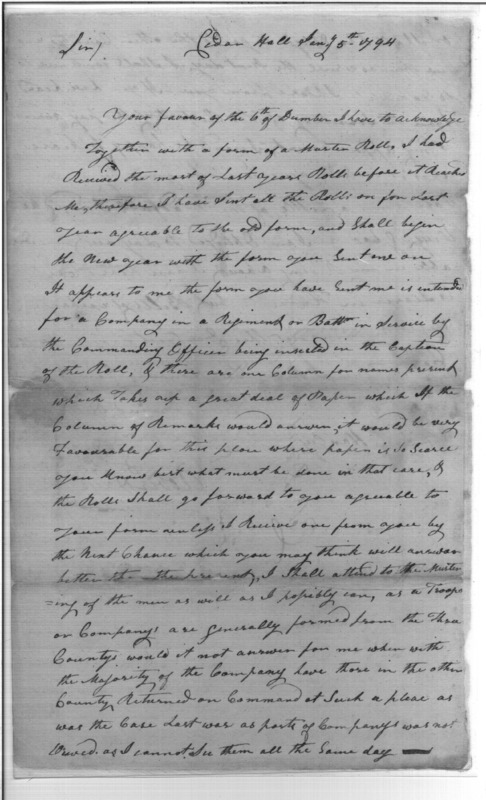 Sir,
Cedar Hall Jany 5th 1794
Your favour of the 6th of Dember I have to acknowledge
Together with a form of a Muster Roll, I had
Recived the most of Last years Rolls before it Reached
Me, therefore I have Sent all the Rolls on for Last
year agreuable to the old form, and Shall begin
the New year with the form you Sent me on
It appears to me the form you have Sent me is intended
for a Company in a Regiment or Battn in Service by
the Commanding Officer being inserted in the Caption
of the Roll, & there are one Column for names present
which Takes up a great deal of Paper which If the
Column of Remarks would answer, it would be very
Favourable for this place where paper is So Scarce
you Know best what must be done in that care, &
the Rolls Shall go forward to you agreuable to
your form unless I Recive one from you by
the Next Chance which you may think will answer
better the the present, I Shall attend to the Muster
=ing of the men as will as I possibly can, as a Troops
or Companys are generally formed from the Three
Countys would it not answer for me when with
the Majority of the Company have those in the other
County Returned on Command at Such a pleac as
was the Case Last war as parts of Companys was not
as I cannot See them all the Same day